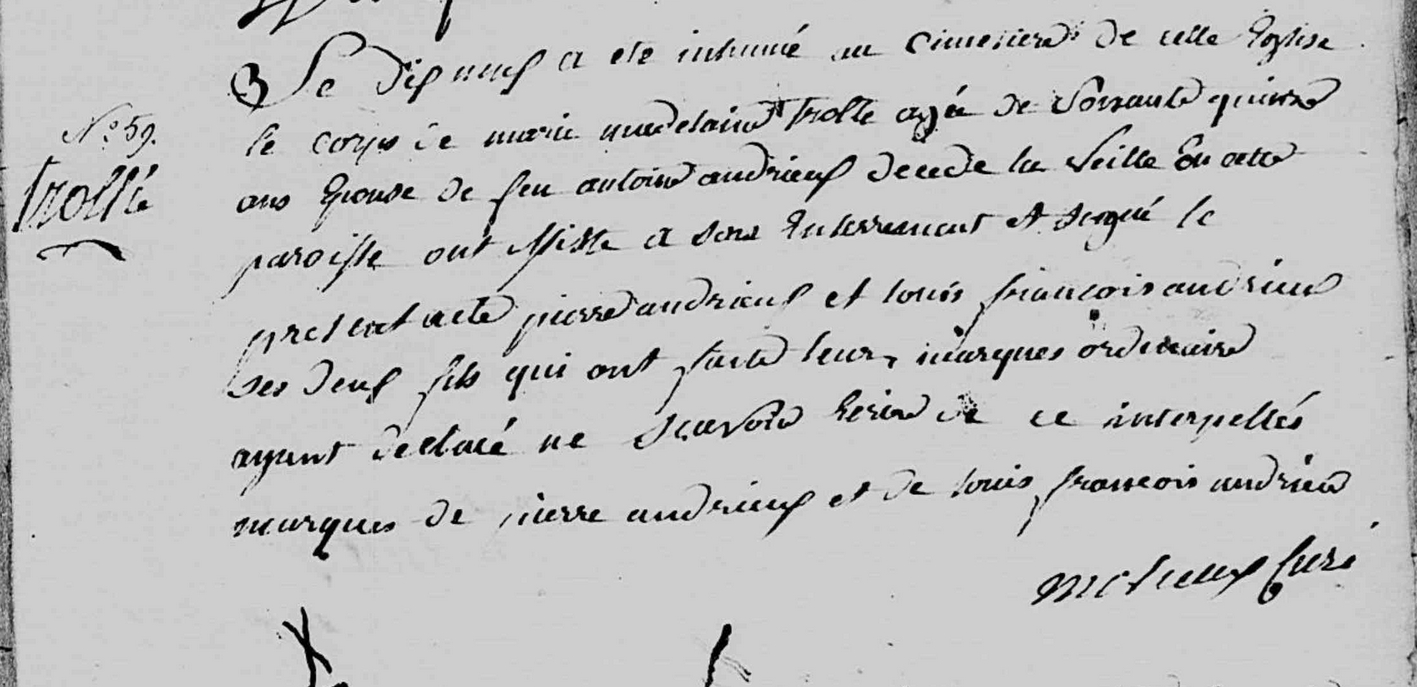 N.° 59.
Trollé
3 Le dix neuf a ete inhumé au Cimetiere de cette Eglise
le corps de marie madelaine Trolle agée de Soixante quinze
ans Epouse de feu antoine andrieux decede la Veille En cette
paroisse ont assiste a son Enterrement et signé le
present acte pierre andrieux et louis françois andrieux
ses deux fils qui ont faite leur marques ordinaire
ayant declaré ne scavoir Ecrire de ce interpellés
marques de pierre andrieux et de louis francois andrieu
Curé